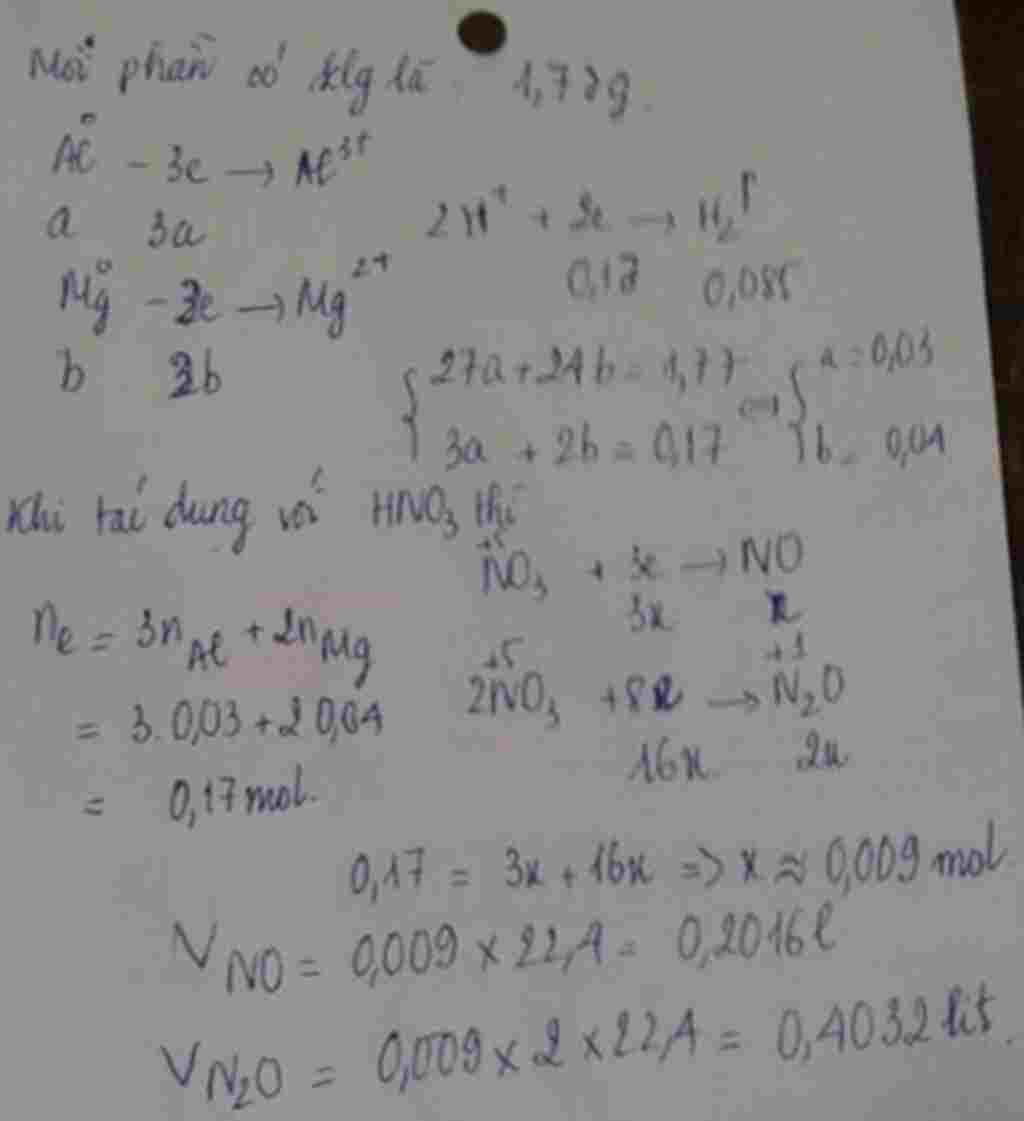 Mỗi phần có klg là 1,77g.
Al⁰ - 3e → Al³⁺
a 3a
2H⁺ + 2e → H₂↑
0,17 0,085
Mg⁰ - 2e → Mg²⁺
b 2b
{ 27a + 24b = 1,77
3a + 2b = 0,17
⇔ { a = 0,03
b = 0,04
Khi tác dụng với HNO₃ thì
nₑ = 3n_Al + 2n_Mg
= 3.0,03 + 2 0,04
= 0,17 mol.
+5
NO₃ + 3e → NO
3x x
+5 +1
2NO₃ + 8e → N₂O
16x 2x
0,17 = 3x + 16x => x ≈ 0,009 mol
V_NO = 0,009 × 22,4 = 0,2016 l
V_N₂O = 0,009 × 2 × 22,4 = 0,4032 lit.